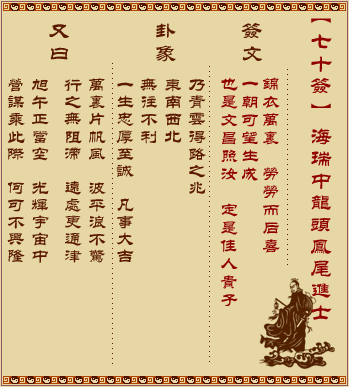 【七十簽】 海瑞中龍頭鳳尾進士
簽文
錦衣萬裏 勞勞而后喜
一朝可望生成
也是文昌照汝 定是佳人貴子
卦象
乃青雲得路之兆
東南西北
無往不利
一生忠厚至誠 凡事大吉
又曰
萬裏片帆風 波平浪不驚
行之無阻滯 遠處更通津
旭午正當空 光輝宇宙中
營謀乘此際 何可不興隆